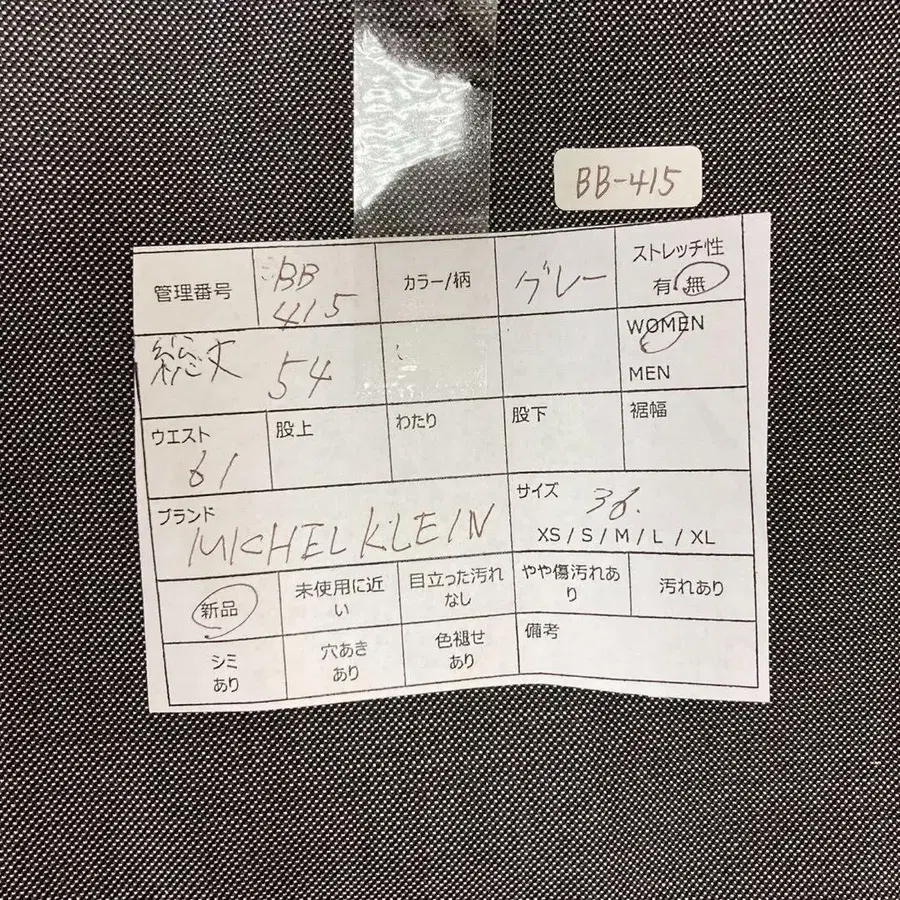 BB-415
管理番号 BB 415 カラー/柄 グレー ストレッチ性 有 無
総丈 54 WOMEN
MEN
ウエスト 61 股上 わたり 股下 裾幅
ブランド MICHEL KLEIN サイズ 36.
XS / S / M / L / XL
新品 未使用に近い 目立った汚れなし やや傷汚れあり 汚れあり
シミあり 穴あきあり 色褪せあり 備考